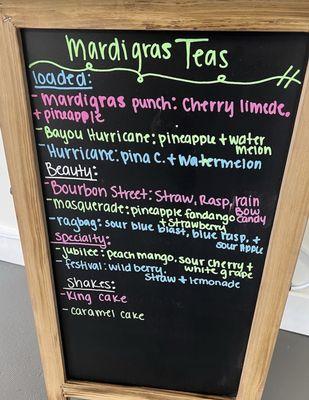 Mardi gras Teas
loaded:
- Mardigras punch: Cherry limede.
+ pineapple
- Bayou Hurricane: pineapple + water
melon
- Hurricane: pina C. + Watermelon
Beauty:
- Bourbon Street: Straw, Rasp, rain
Bow
- masquerade: pineapple fandango candy
+ strawberry
- ragbag: sour blue blast, blue rasp. +
sour apple
specialty:
- Jubilee: peach mango. sour cherry +
white grape
- festival: wild berry.
straw + lemonade
shakes:
- King cake
- caramel cake